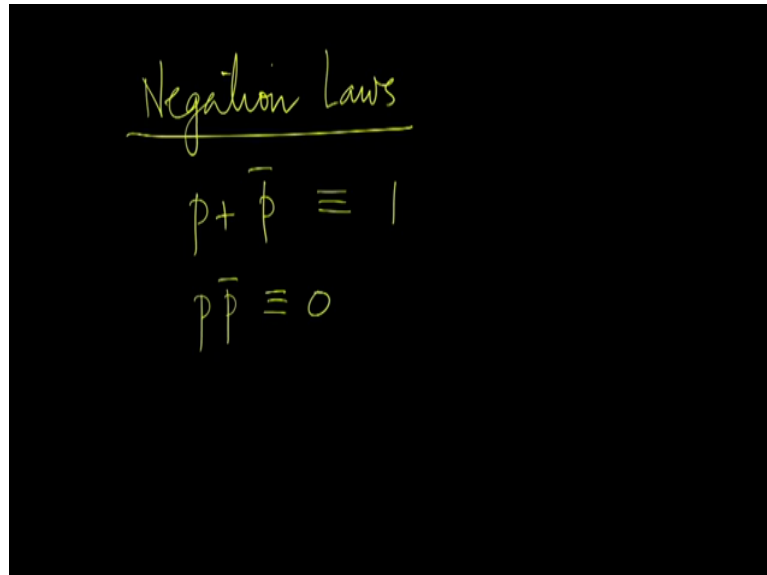 Negation Laws
p + p̄ ≡ 1
p p̄ ≡ 0